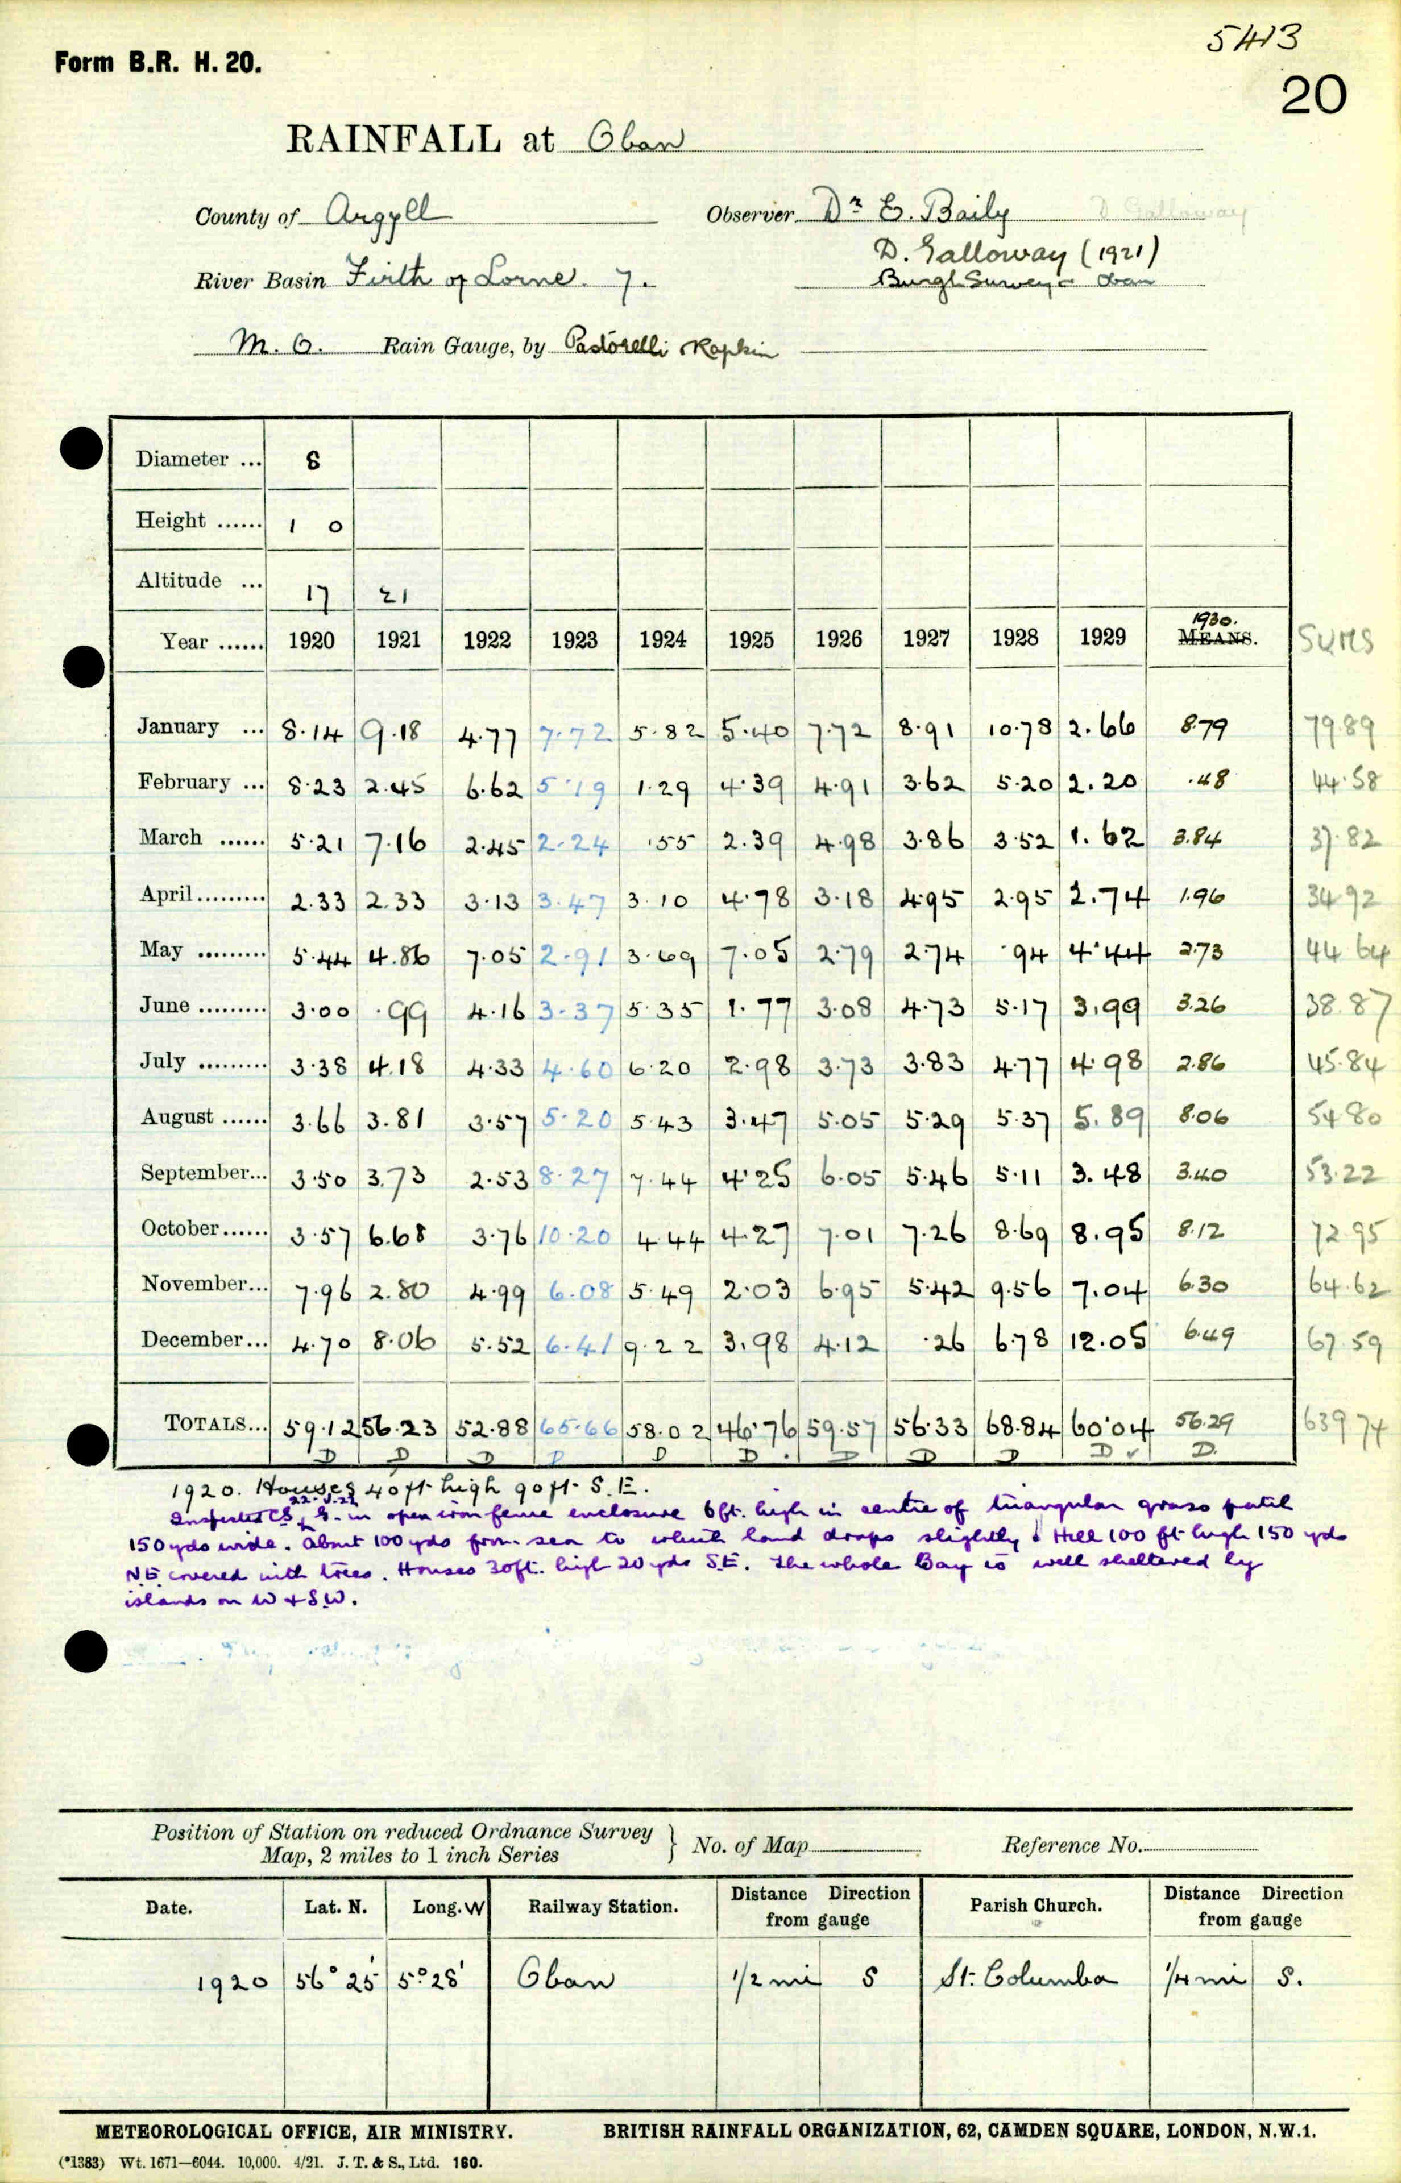 5413
Form B.R. H. 20.
20
RAINFALL at Oban
County of Argyll Observer Dr E. Baily D Galloway
D. Galloway (1921)
River Basin Firth of Lorne. 7. Burgh Surveyor Oban
M. O. Rain Gauge, by Pastorelli & Rapkin
Diameter ... 8
Height ...... 1 0
Altitude ... 17 21
Year ...... 1920 1921 1922 1923 1924 1925 1926 1927 1928 1929 1930. MEANS. SUMS
January ... 8.14 9.18 4.77 7.72 5.82 5.40 7.72 8.91 10.78 2.66 8.79 79.89
February ... 8.23 2.45 6.62 5.19 1.29 4.39 4.91 3.62 5.20 2.20 .48 44.58
March ...... 5.21 7.16 2.45 2.24 .55 2.39 4.98 3.86 3.52 1.62 3.84 37.82
April ......... 2.33 2.33 3.13 3.47 3.10 4.78 3.18 4.95 2.95 2.74 1.96 34.92
May ......... 5.44 4.86 7.05 2.91 3.69 7.05 2.79 2.74 .94 4.44 2.73 44.64
June ......... 3.00 .99 4.16 3.37 5.35 1.77 3.08 4.73 5.17 3.99 3.26 38.87
July ......... 3.38 4.18 4.33 4.60 6.20 2.98 3.73 3.83 4.77 4.98 2.86 45.84
August ...... 3.66 3.81 3.57 5.20 5.43 3.47 5.05 5.29 5.37 5.89 8.06 54.80
September... 3.50 3.73 2.53 8.27 7.44 4.25 6.05 5.46 5.11 3.48 3.40 53.22
October ...... 3.57 6.68 3.76 10.20 4.44 4.27 7.01 7.26 8.69 8.95 8.12 72.95
November... 7.96 2.80 4.99 6.08 5.49 2.03 6.95 5.42 9.56 7.04 6.30 64.62
December... 4.70 8.06 5.52 6.41 9.22 3.98 4.12 .26 6.78 12.05 6.49 67.59
TOTALS... 59.12 56.23 52.88 65.66 58.02 46.76 59.57 56.33 68.84 60.04 56.29 639.74
D D D D D D. D D D D ✓ D.
1920. Houses 40 ft high 90 ft. S.E.
22.5.22
Inspected CS, G. in open iron fence enclosure 6ft. high in centre of triangular grass patch
150 yds wide. About 100 yds from sea to which land drops slightly. Hill 100 ft high 150 yds
N.E. covered with trees. Houses 30ft. high 20 yds S.E. The whole Bay is well sheltered by
islands on W & S.W.
Position of Station on reduced Ordnance Survey
Map, 2 miles to 1 inch Series } No. of Map Reference No.
Date. Lat. N. Long. W Railway Station. Distance Direction from gauge Parish Church. Distance Direction from gauge
1920 56° 25' 5° 28' Oban 1/2 mi S St. Columba 1/4 mi S.
METEOROLOGICAL OFFICE, AIR MINISTRY. BRITISH RAINFALL ORGANIZATION, 62, CAMDEN SQUARE, LONDON, N.W.1.
(*1383) Wt. 1671—6044. 10,000. 4/21. J. T. & S., Ltd. 160.